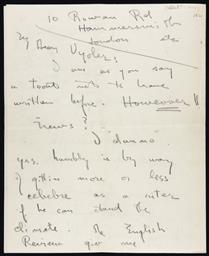 10 Rowan Rd.
Hammersmith
London
My dear Vyder,
I am as you say
a to not to have
written before. However!!
Frews?
I dunno.
yes. humbly is by way
of gittin more or less
celebre as a riter
if he can stand the
climate. The English
Review give me